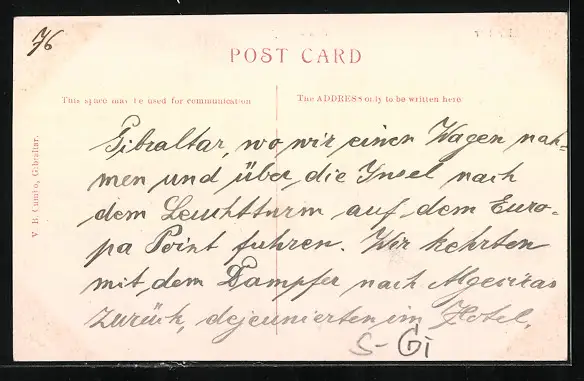 76
POST CARD
This space may be used for communication
The ADDRESS only to be written here
V. B. Cumbo, Gibraltar.
Gibraltar, wo wir einen Wagen nah=
men und über die Insel nach
dem Leuchtturm auf dem Euro-
pa Point fuhren. Wir kehrten
mit dem Dampfer nach Algeciras
zurück, dejeunierten im Hotel.
S-Gi